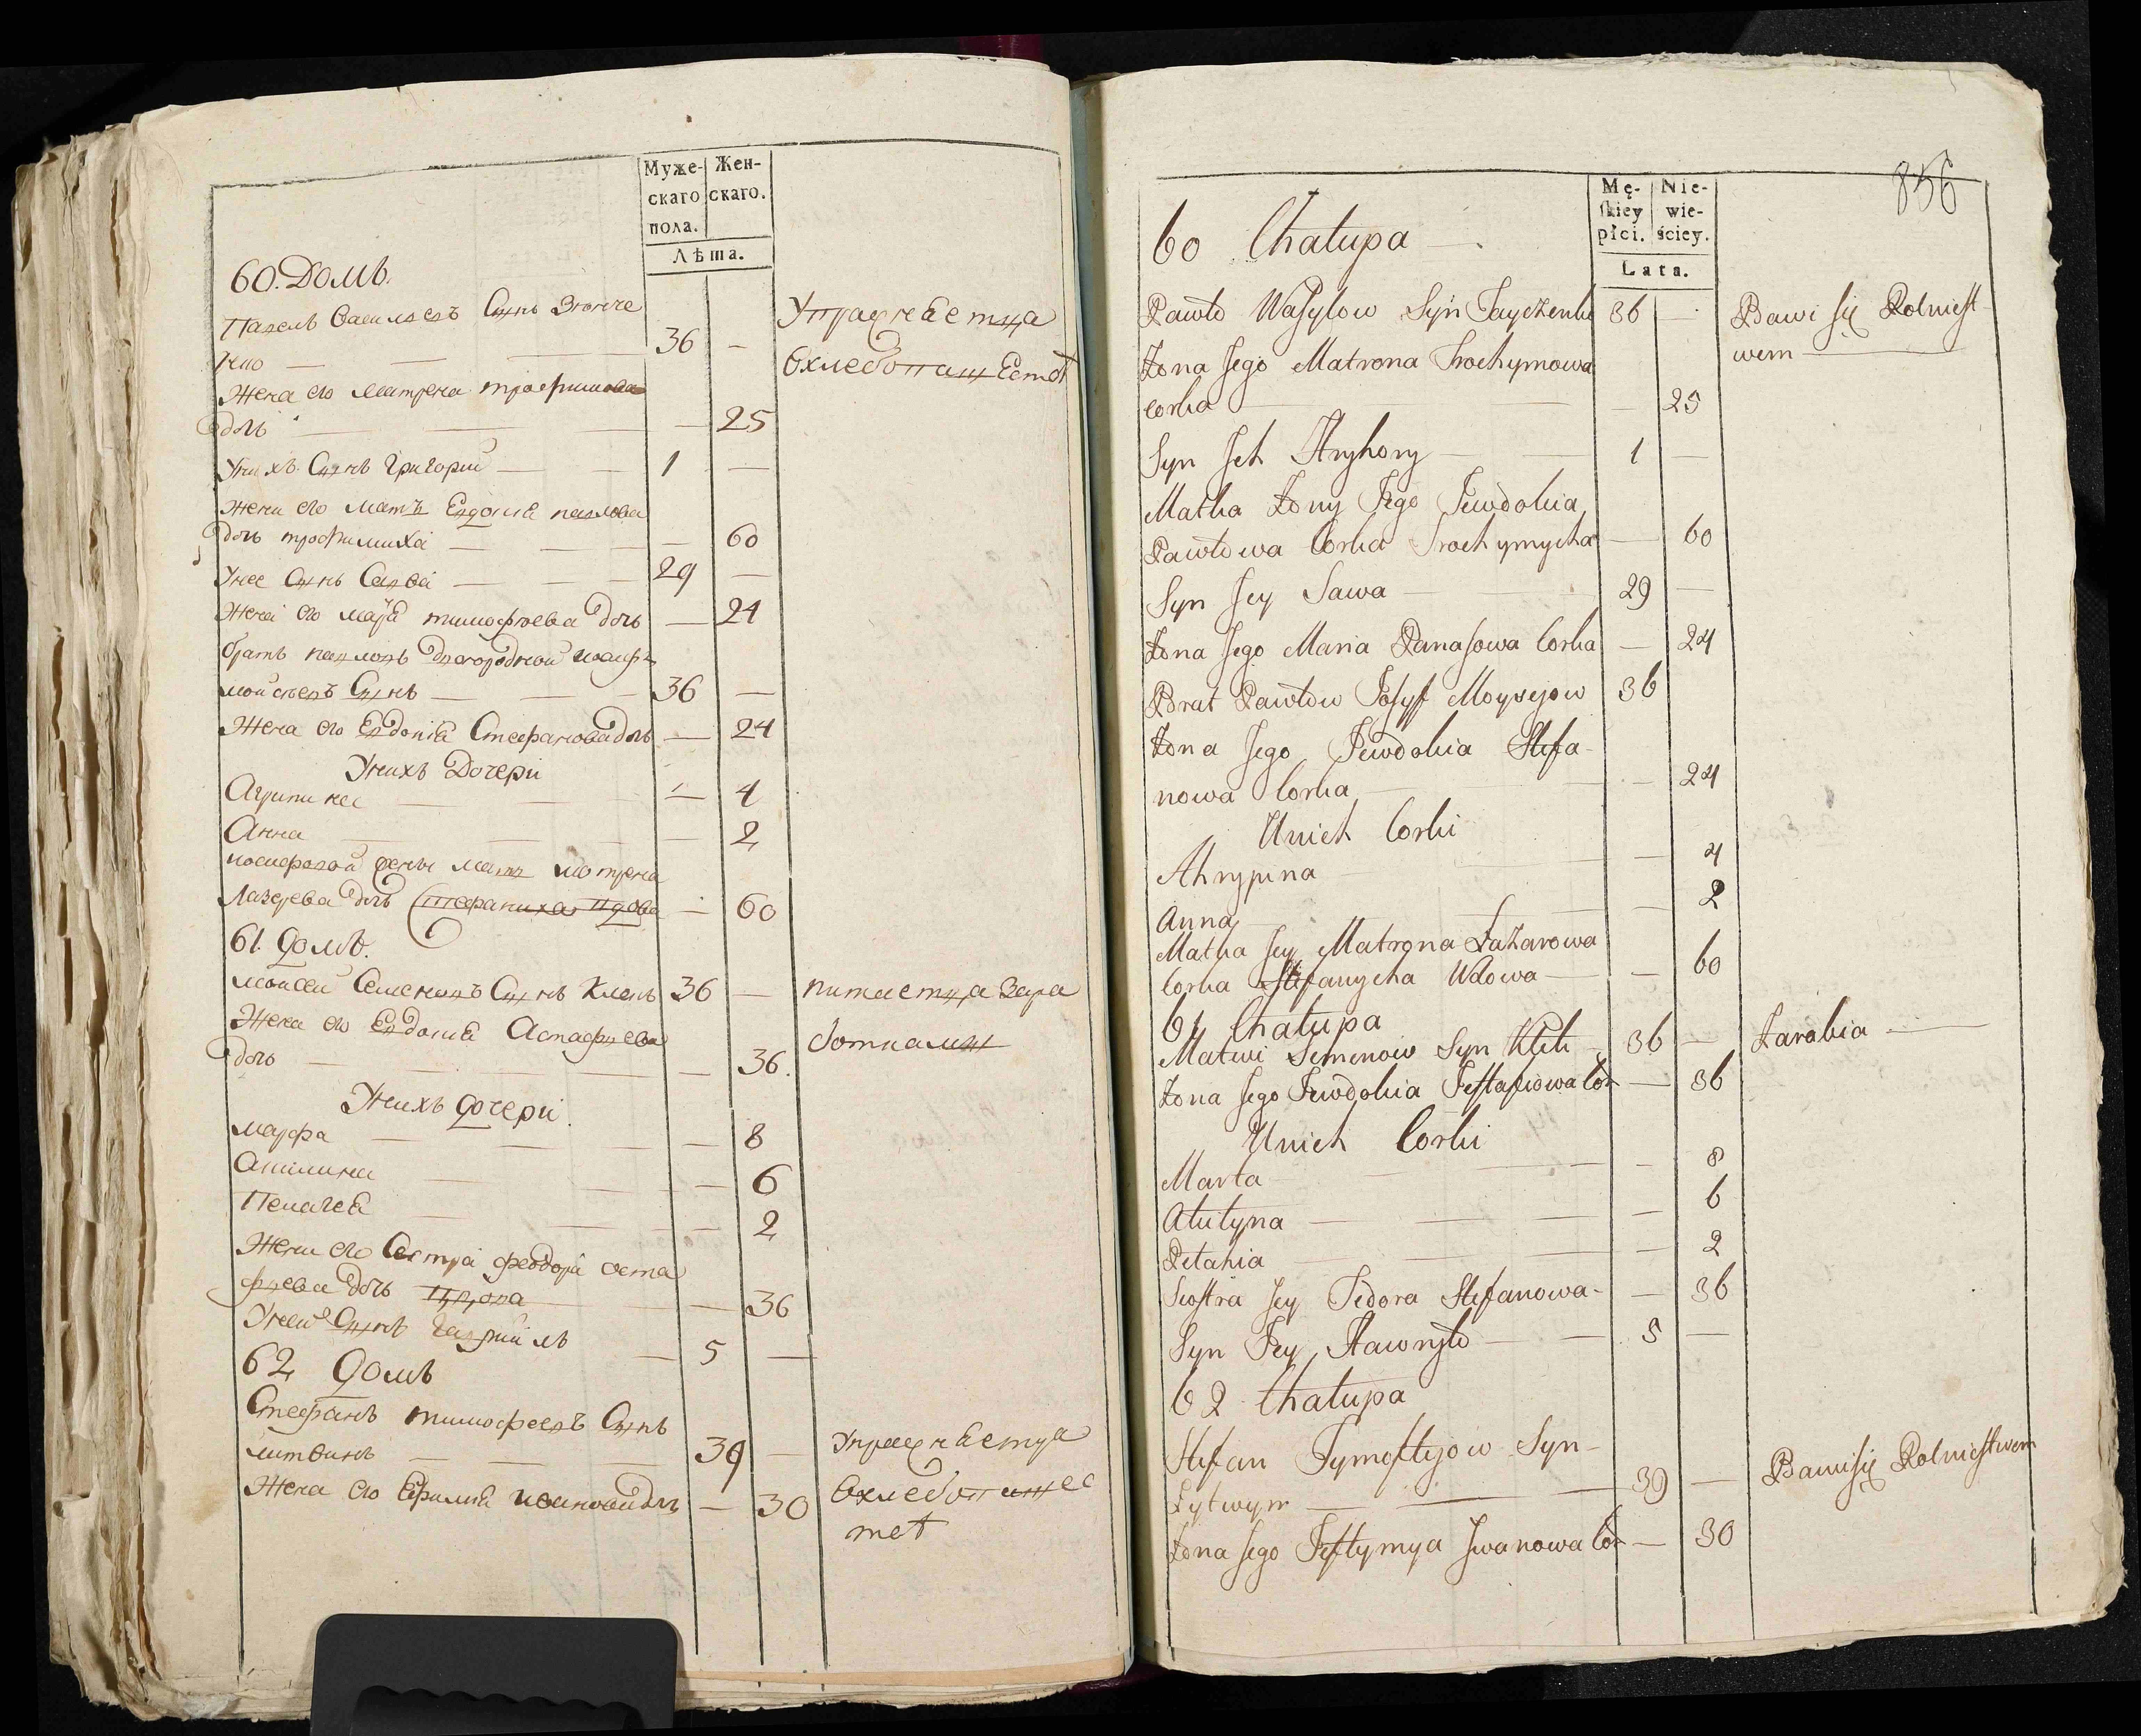 Муже-
скаго
пола.
Жен-
скаго.
Лѣта.
60. Домъ.
Павелъ Васильевъ Сынъ
нко — 36 —
Упражняется
Вхлебопашествѣ
Жена его Матрена трофимова
дочь — 25
Унихъ Сынъ Григорий — 1 —
Жены его мать Евдокия павлова
дочь трофимиха — 60
Унее Сынъ Савва — 29 —
Жена его Маря тимофеева дочь — 24
братъ павловъ двоюродной иосифъ
мойсеевъ Сынъ — 36 —
Жена его Евдокия Стефанова дочь — 24
Унихъ Дочери
Агрипина — 4
Анна — 2
иосифовой жены мать мотрена
Лазарева дочь Стефаниха вдова — 60
61. Домъ.
мойсей Семеновъ Сынъ Клекъ 36 —
питается зара
ботками
Жена его Евдокия Астафиева
дочь — 36.
Унихъ дочери.
марфа — 8
Акилина — 6
Пелагея — 2
Жены его Сестра феодора оста
фиева дочь вдова — 36
Унеи Сынъ Гаврийлъ — 5 —
62 Домъ
Стефанъ тимофеевъ Сынъ
литвинъ — 39 —
Упражняется
Вхлебопашес
твѣ
Жена его Ефимия иванова дочь — 30
856
Mę-
skiey
płci.
Nie-
wie-
ściey.
Lata.
60 Chałupa
Pawło Wasylow Syn 36 —
Bawi się Rolniest
wem
Żona Jego Matrona Trochymowa
Corka — 25
Syn Ich Hryhory — 1 —
Matka Żony Jego Jewdokia
Pawłowa Corka Trochymycha — 60
Syn Jey Sawa — 29 —
Żona Jego Maria Panasowa Corka — 24
Brat Pawłow Josyf Moysejow 36
Żona Jego Jewdokia Stefa-
nowa Corka — 24
Unich Corki
Ahrypina — 4
Anna — 2
Matka Jey Matrona Łazarowa
Corka Stefanycha Wdowa — 60
61 Chałupa
Matwi Semenow Syn Klek 36 —
Zarabia
Żona Jego Jewdokia Jestafiowa Cor — 36
Unich Corki
Marta — 8
Akulyna — 6
Pełahia — 2
Siostra Jey Fedora Stefanowa — 36
Syn Jey Hawryło — 5 —
62 Chałupa
Stefan Tymoftyjow Syn
Lytwyn — 39 —
Bawi się Rolniestwem
Żona Jego Jeftymya Iwanowa Cor — 30